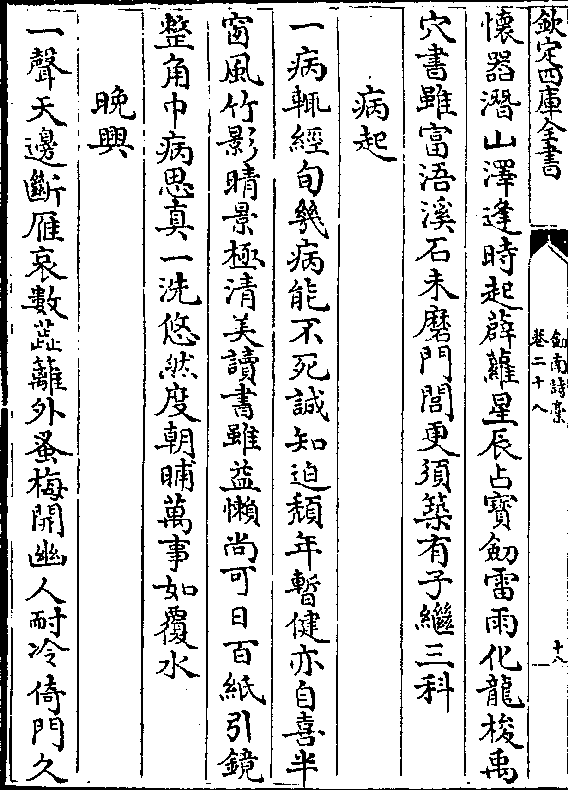 欽定四庫全書
劍南詩藁
卷二十八
十八
懷器潛山澤逢時起薜蘿星辰占寶劒雷雨化龍梭禹
穴書雖富浯溪石未磨門閭更須築有子繼三科
病起
一病輒經旬幾病能不死誠知迫頹年暫健亦自喜半
窗風竹影晴景極清美讀書雖益懶尚可日百紙引鏡
整角巾病思真一洗悠然度朝晡萬事如覆水
晚興
一聲天邊斷雁哀數蕋蘺外蚤梅開幽人耐冷倚門久